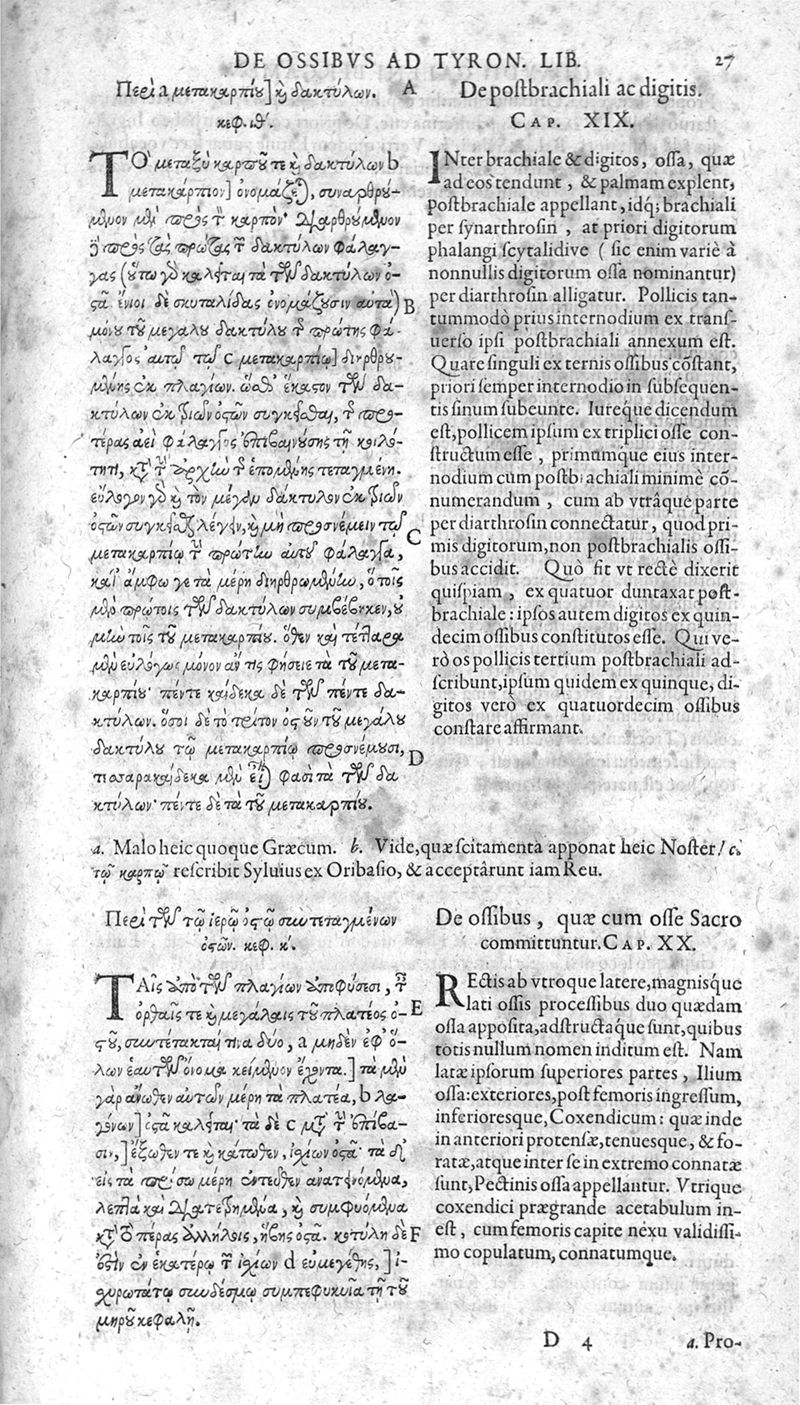 DE OSSIBVS AD TYRON. LIB. 27
Περὶ a μετακαρπίου] καὶ δακτύλων. A
κεφ. ιθʹ.
ΤΟ μεταξὺ καρποῦ τε καὶ δακτύλων b
μετακάρπιον] ὀνομάζεται, συναρθρού-
μενον μὲν πρὸς τὸν καρπόν· διαρθρούμενον
δὲ πρὸς τὰς πρώτας τῶν δακτύλων φάλαγ-
γας (οὕτω γὰρ καλεῖται τὰ τῶν δακτύλων ὀ-
στᾶ. ἔνιοι δὲ σκυταλίδας ὀνομάζουσιν αὐτὰ) B
μόνου τοῦ μεγάλου δακτύλου τῆς πρώτης φά-
λαγγος αὐτῷ τῷ c μετακαρπίῳ] διηρθρου-
μένης ἐκ πλαγίων. ὥσθ' ἕκαστον τῶν δα-
κτύλων ἐκ τριῶν ὀστῶν συγκεῖσθαι, τῆς προ-
τέρας ἀεὶ φάλαγγος ἐπιβαινούσης τῇ κοιλό-
τητι, κατὰ τὴν ἀρχὴν τῆς ἑπομένης τεταγμένῃ.
εὔλογον γὰρ καὶ τὸν μέγαν δάκτυλον ἐκ τριῶν
ὀστῶν συγκεῖσθαι λέγειν, καὶ μὴ προσνέμειν τῷ C
μετακαρπίῳ τὴν πρώτην αὐτοῦ φάλαγγα,
κατ' ἄμφω γε τὰ μέρη διηρθρωμένην, ὃ τοῖς
μὲν πρώτοις τῶν δακτύλων συμβέβηκεν, οὐ
μὴν τοῖς τοῦ μετακαρπίου. ὅθεν καὶ τέτταρα
μὲν εὐλόγως μόνον ἄν τις φήσειε τὰ τοῦ μετα-
καρπίου· πέντε καὶ δέκα δὲ τῶν πέντε δα-
κτύλων. ὅσοι δὲ τὸ τρίτον ὀστοῦν τοῦ μεγάλου
δακτύλου τῷ μετακαρπίῳ προσνέμουσι, D
τεσσαρακαίδεκα μὲν εἶναί φασι τὰ τῶν δα
κτύλων· πέντε δὲ τὰ τοῦ μετακαρπίου.
De postbrachiali ac digitis.
CAP. XIX.
INter brachiale & digitos, ossa, quæ
ad eos tendunt, & palmam explent,
postbrachiale appellant, idq; brachiali
per synarthrosin, at priori digitorum
phalangi scytalidive (sic enim variè à
nonnullis digitorum ossa nominantur)
per diarthrosin alligatur. Pollicis tan-
tummodò prius internodium ex trans-
uerso ipsi postbrachiali annexum est.
Quare singuli ex ternis ossibus cõstant,
priori semper internodio in subsequen-
tis sinum subeunte. Iureq́ue dicendum
est, pollicem ipsum ex triplici osse con-
structum esse, primumque eius inter-
nodium cum postbrachiali minimè cõ-
numerandum, cum ab vtrâque parte
per diarthrosin connectatur, quod pri-
mis digitorum, non postbrachialis ossi-
bus accidit. Quò fit vt rectè dixerit
quispiam, ex quatuor duntaxat post-
brachiale: ipsos autem digitos ex quin-
decim ossibus constitutos esse. Qui ve-
rò os pollicis tertium postbrachiali ad-
scribunt, ipsum quidem ex quinque, di-
gitos verò ex quatuordecim ossibus
constare affirmant.
a. Malo heic quoque Græcum. b. Vide, quæ scitamenta apponat heic Noster! c.
τῷ καρπῷ rescribit Syluius ex Oribasio, & acceptârunt iam Reu.
Περὶ τῶν τῷ ἱερῷ ὀστῷ συντεταγμένων
ὀστῶν. κεφ. κʹ.
ΤΑῖς ἀπὸ τῶν πλαγίων ἀποφύσεσι, ταῖς
ὀρθαῖς τε καὶ μεγάλαις τοῦ πλατέος ὀ- E
στοῦ, συντέτακταί τινα δύο, a μηδὲν ἐφ' ὅ-
λων ἑαυτῶν ὄνομα κείμενον ἔχοντα.] τὰ μὲν
γὰρ ἄνωθεν αὐτῶν μέρη τὰ πλατέα, b λα-
γόνων] ὀστᾶ καλεῖται· τὰ δὲ c μετὰ τὴν ἐπίβα-
σιν,] ἔξωθέν τε καὶ κάτωθεν, ἰσχίων ὀστᾶ· τὰ δ'
εἰς τὰ πρόσω μέρη ἐντεῦθεν ἀνατεινόμενα,
λεπτὰ καὶ διατετρημένα, καὶ συμφυόμενα
κατὰ τὸ πέρας ἀλλήλοις, ἥβης ὀστᾶ. κοτύλη δὲ F
ἐστὶν ἐν ἑκατέρῳ τῶν ἰσχίων d εὐμεγέθης,] ἰ-
σχυροτάτῳ συνδέσμῳ συμπεφυκυῖα τῇ τοῦ
μηροῦ κεφαλῇ.
De ossibus, quæ cum osse Sacro
committuntur. CAP. XX.
REctis ab vtroque latere, magnisq́ue
lati ossis processibus duo quædam
ossa apposita, adstructaq́ue sunt, quibus
totis nullum nomen inditum est. Nam
latæ ipsorum superiores partes, Ilium
ossa: exteriores, post femoris ingressum,
inferioresque, Coxendicum: quæ inde
in anteriori protensæ, tenuesque, & fo-
ratæ, atque inter se in extremo connatæ
sunt, Pectinis ossa appellantur. Vtrique
coxendici prægrande acetabulum in-
est, cum femoris capite nexu validissi-
mo copulatum, connatumque.
D 4 a. Pro-